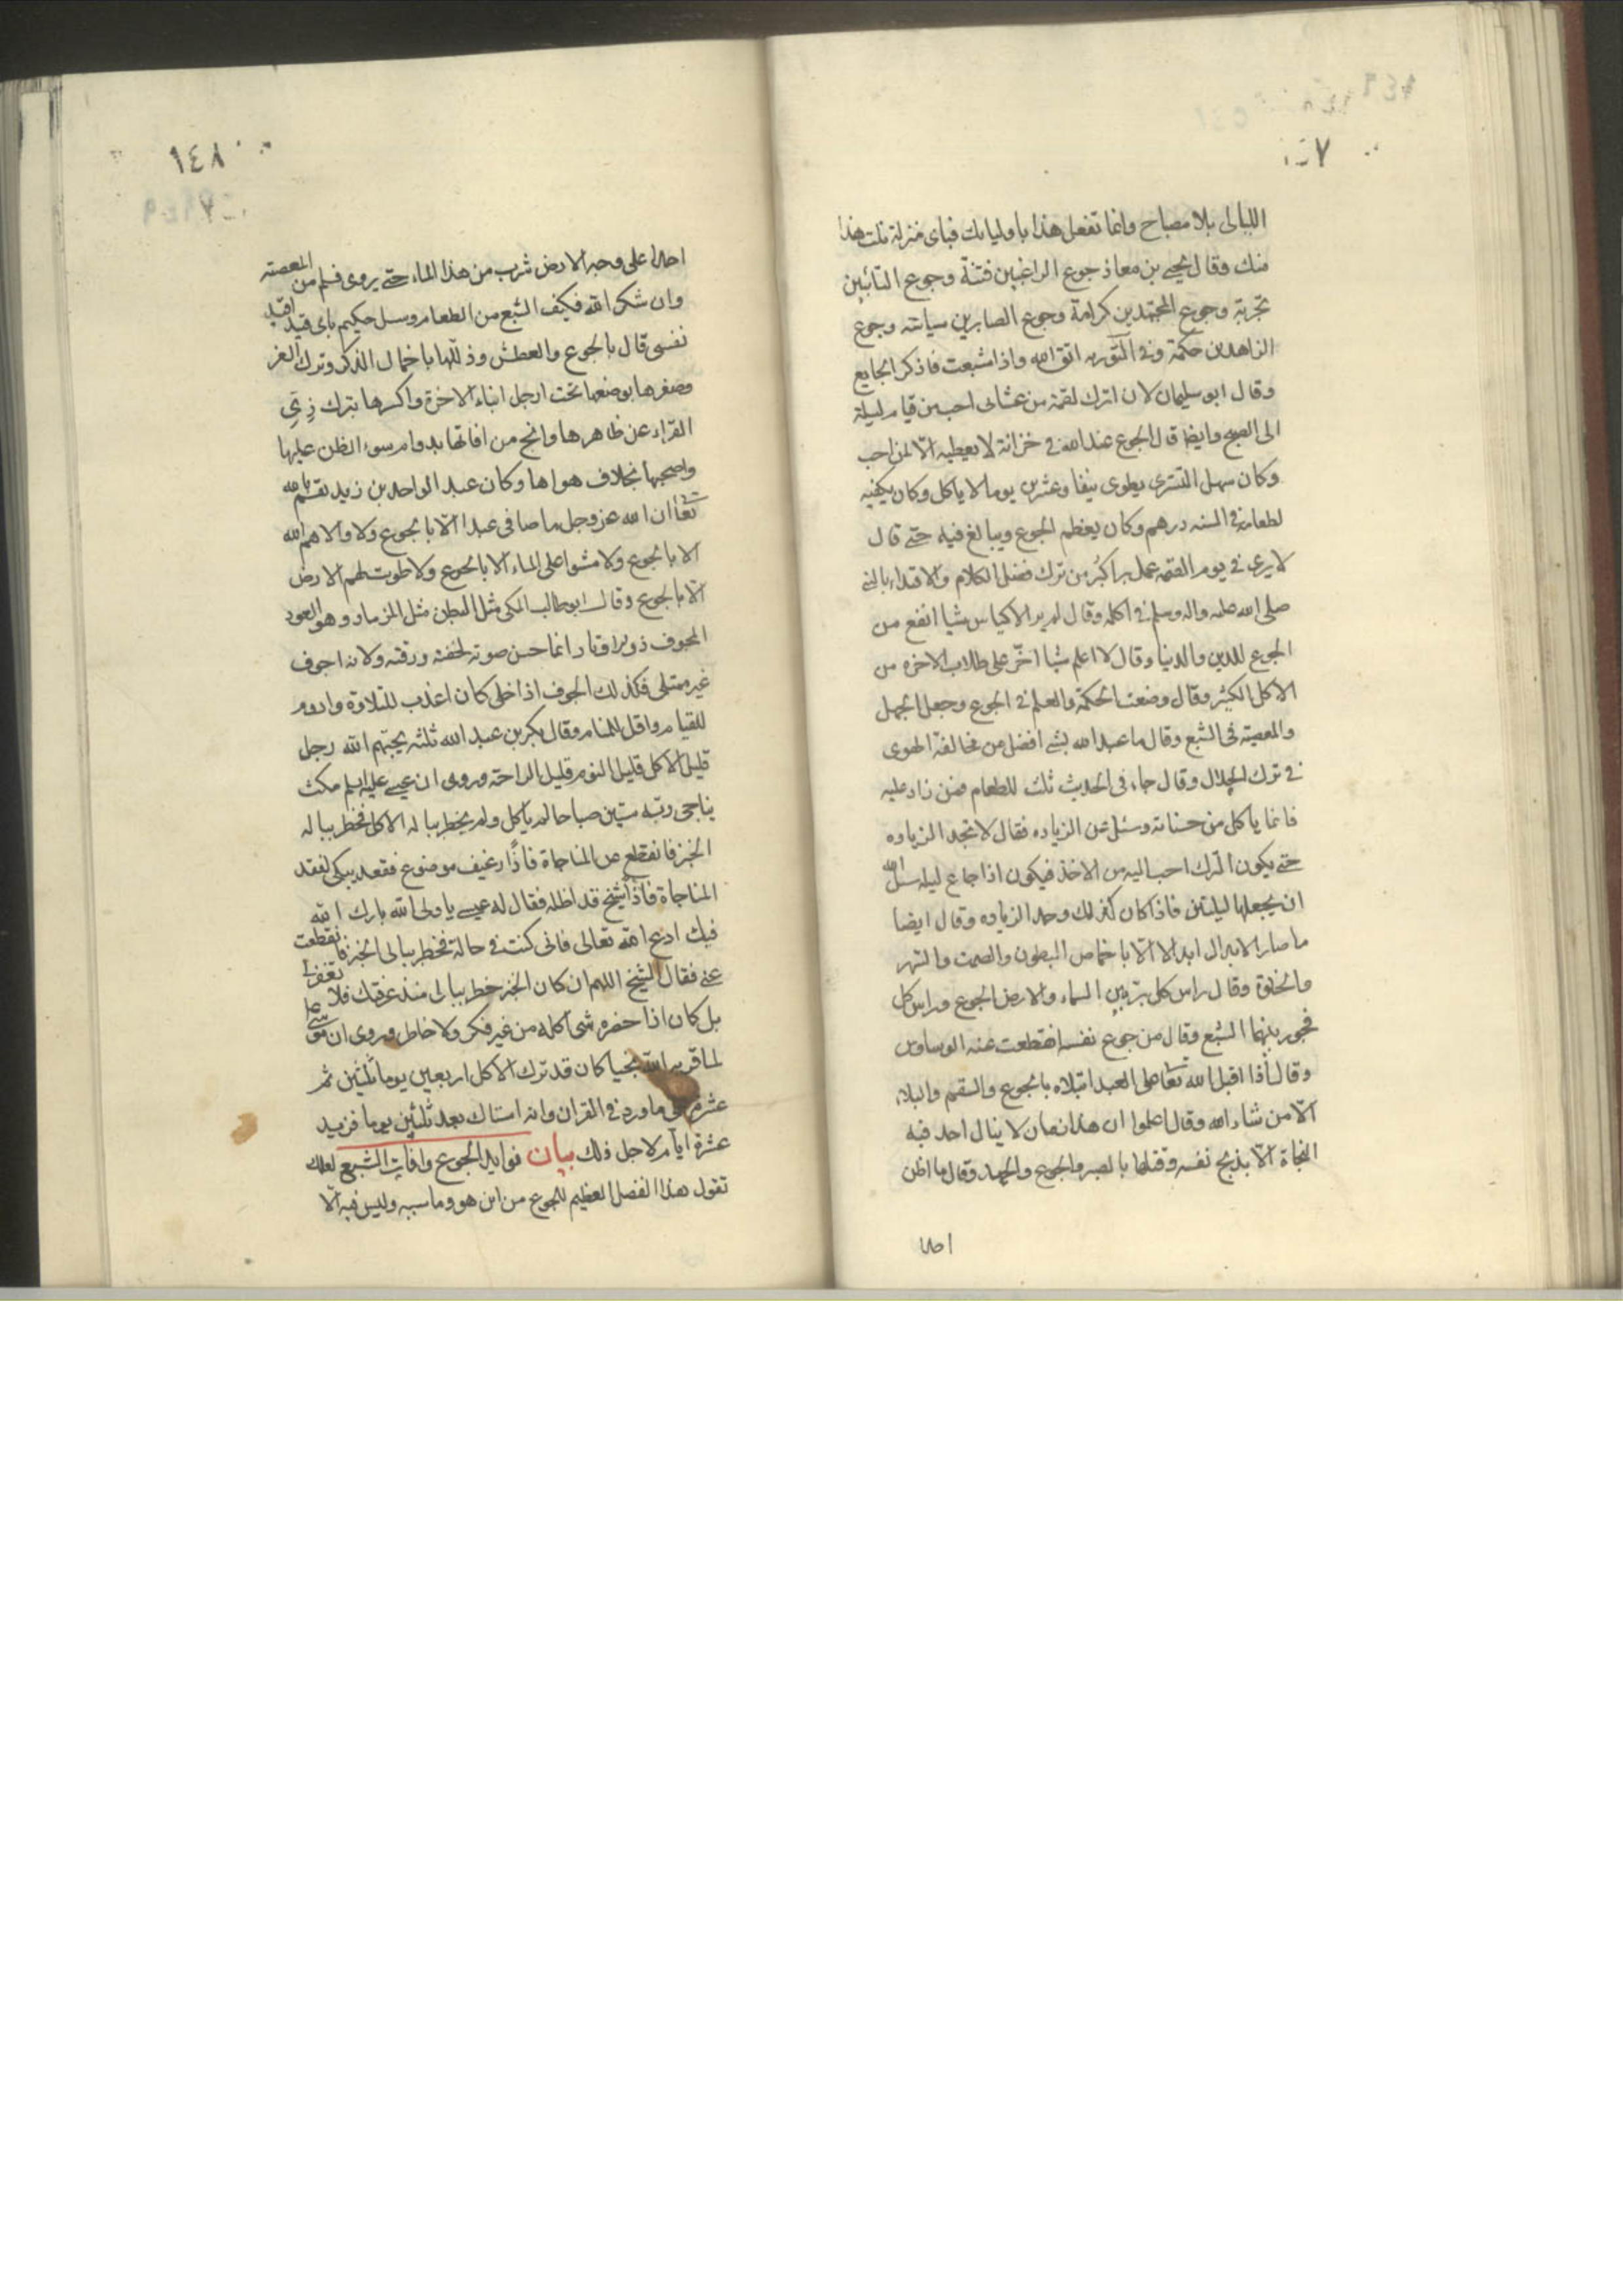 ١٤٧
الليالى بلا مصباح وانما تفعل هذا باوليائك فباى منزلة نلت هذا
منك وقال يحيى بن معاذ جوع الراغبين فتنة وجوع التائبين
تجربة وجوع المجتهدين كرامة وجوع الصابرين سياسة وجوع
الزاهدين حكمة وفى التوريه اتق الله واذا شبعت فاذكر الجايع
وقال ابو سليمان لان اترك لقمة من عشائى احب من قيام ليلة
الى الصبح وايضا قال الجوع عند الله فى خزانة لا يعطيه الّا لمن احب
وكان سهل التسترى يطوى نيفا وعشرين يوما لا ياكل وكان يكفيه
لطعامه فى السنه درهم وكان يعظم الجوع ويبالغ فيه حتى قال
لا يرى فى يوم القيمه عمل بر اكبر من ترك فضل الكلام والاقتداء بالنبى
صلى الله عليه واله وسلم فى اكله وقال لم ير الاكياس شيا انفع من
الجوع للدين والدنيا وقال لا اعلم شيا اضرّ على طلاب الاخره من
الاكل الكثير وقال وضعت الحكمة والعلم فى الجوع وجعل الجهل
والمعصية فى الشبع وقال ما عبد الله بشى افضل من مخالفة الهوى
فى ترك الحلال وقال جاء فى الحديث ثلث للطعام فمن زاد عليه
فانما ياكل من حسناته وسئل عن الزياده فقال لا تجد الزياده
حتى يكون الترك احب اليه من الاخذ فيكون اذا جاع ليله سئل الله
ان يجعلها ليلتين فاذا كان كذلك وجد الزياده وقال ايضا
ما صار الابدال ابدالا الّا باخماص البطون والصمت والسهر
والخلوة وقال راس كل بر بين السماء والارض الجوع وراس كل
فجور بينهما الشبع وقال من جوع نفسه انقطعت عنه الوساوس
وقال اذا اقبل الله تعا على العبد ابتلاه بالجوع والسقم والبلاء
الّا من شاء الله وقال اعلموا ان هذا زمان لا ينال احد فيه
النجاة الّا بذبح نفسه وقتلها بالصبر والجوع والجهد وقال ما اظن
احدا
١٤٨
احدا على وجه الارض شرب من هذا الماء حتى يروى فسلم من المعصيه
وان شكر الله فكيف الشبع من الطعام وسئل حكيم باى قيد اقيد
نفسى قال بالجوع والعطش وذلّلها باخمال الذكر وترك العز
وصغرها بوضعها تحت ارجل ابناء الاخرة واكسرها بترك زىّ
القراء عن ظاهرها وانج من افاتها بدوام سوء الظن عليها
واصحبها بخلاف هواها وكان عبد الواحد بن زيد يقسم بالله
تعا ان الله عز وجل ما صافى عبدا الّا بالجوع ولا والاهم الله
الا بالجوع ولا مشوا على الماء الا بالجوع ولا طويت لهم الارض
الّا بالجوع وقال ابو طالب المكى مثل البطن مثل المزمار وهو العود
المجوف ذو الاوتار انما حسن صوته لخفته ورقته ولانه اجوف
غير ممتلى فكذلك الجوف اذا خلى كان اعذب للتلاوة وادوم
للقيام واقل للمنام وقال بكر بن عبد الله ثلثه يحبّهم الله رجل
قليل الاكل قليل النوم قليل الراحة وروى ان عيسى عليه السلم مكث
يناجى ربّه ستين صباحا لم ياكل ولم يخطر بباله الاكل فخطر بباله
الخبز فانقطع عن المناجاة فاذا رغيف موضوع فقعد يبكى لفقد
المناجاة فاذا شيخ قد اظله فقال له عيسى يا ولى الله بارك الله
فيك ادع الله تعالى فانى كنت فى حالة فخطر ببالى الخبز فانقطعت
عنى فقال الشيخ اللهم ان كان الخبز خطر ببالى منذ عرفتك فلا تغفر لى
بل كان اذا حضر شى اكله من غير فكر ولا خاطر وروى ان موسى
لما قربه الله نجيا كان قد ترك الاكل اربعين يوما ثلثين ثم
عشر على ما ورد فى القران وانه استاك بعد ثلثين يوما فزيد
عشرة ايام لاجل ذلك بيان فوايد الجوع وافات الشبع لعلك
تقول هذا الفضل العظيم للجوع من اين هو وما سببه وليس فيه الّا